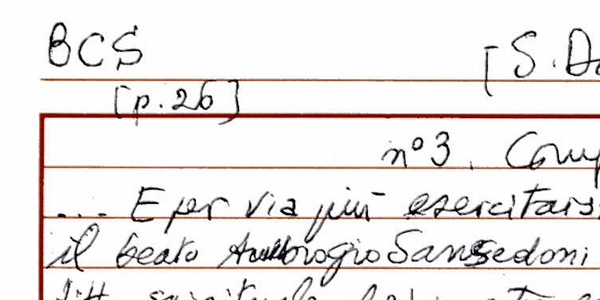 BCS [S. Do
[p. 26]
n° 3. Comp
... E per via più esercitars
il beato Ambrogio Sansedoni